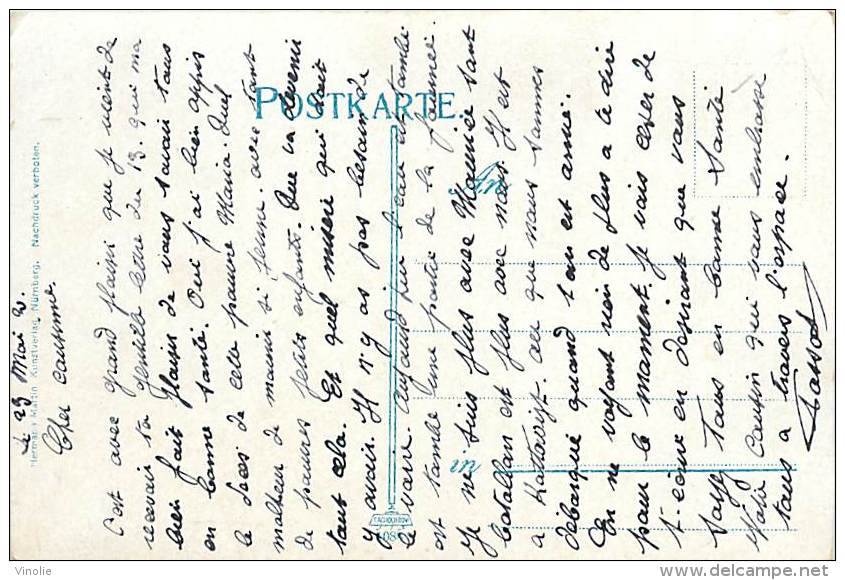 le 23 Mai 20.
Cher cousin
C'est avec grand plaisir que je vient de
recevoir ta gentille lettre du 13. qui ma
bien fait plaisir de vous savoir tous
en bonne santé. Oui j'ai bien appris
le décès de cette pauvre Maria. Quel
malheur de mourir si jeune. avec tant
de pauvres petits enfants. Que va devenir
tout cela. Et quel misère qui doit
y avoir. Il n'y as pas besoin de
le voir. Aujourd'hui l'eau est tombé
est tombé une partie de la journée.
Je ne suis plus avec Maurice sont
batallon est plus avec nous. Il est
a Kattowist. ou que nous sommes
débarqué quand l'on est arrivé.
En ne voyant rien de plus a te dire
pour le moment. Je vais cesser de
t'écrire en desirant que vous
soyez tous en bonne santé
Votre Cousin qui vous embrasse
tous a travers l'espace.
POSTKARTE.
An
in
Hermann Martin Kunstverlag, Nürnberg. Nachdruck verboten.
Vinolie
delcampe.net